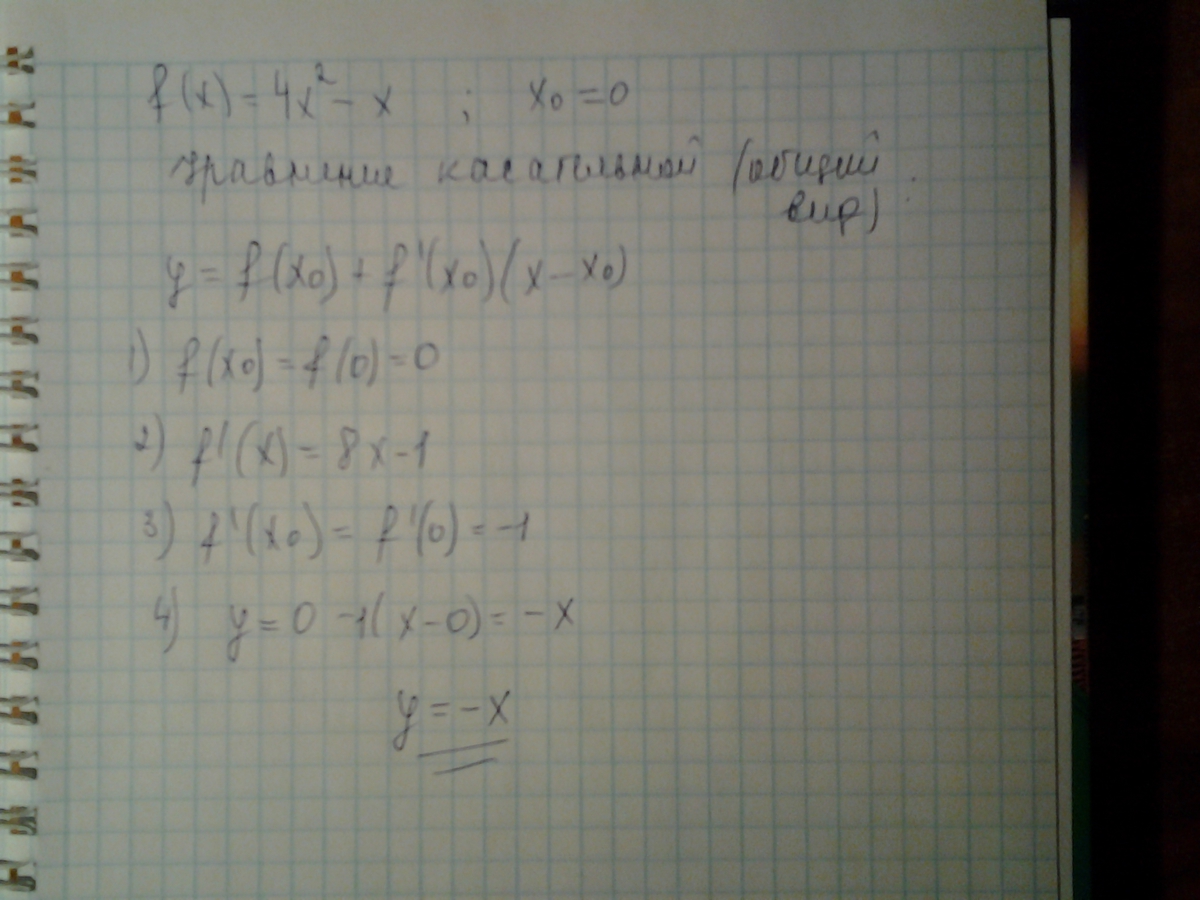 f(x) = 4x² - x ; x₀ = 0
уравнение касательной (общий
вид)
y = f(x₀) + f'(x₀)(x - x₀)
1) f(x₀) = f(0) = 0
2) f'(x) = 8x - 1
3) f'(x₀) = f'(0) = -1
4) y = 0 - 1(x - 0) = -x
y = -x